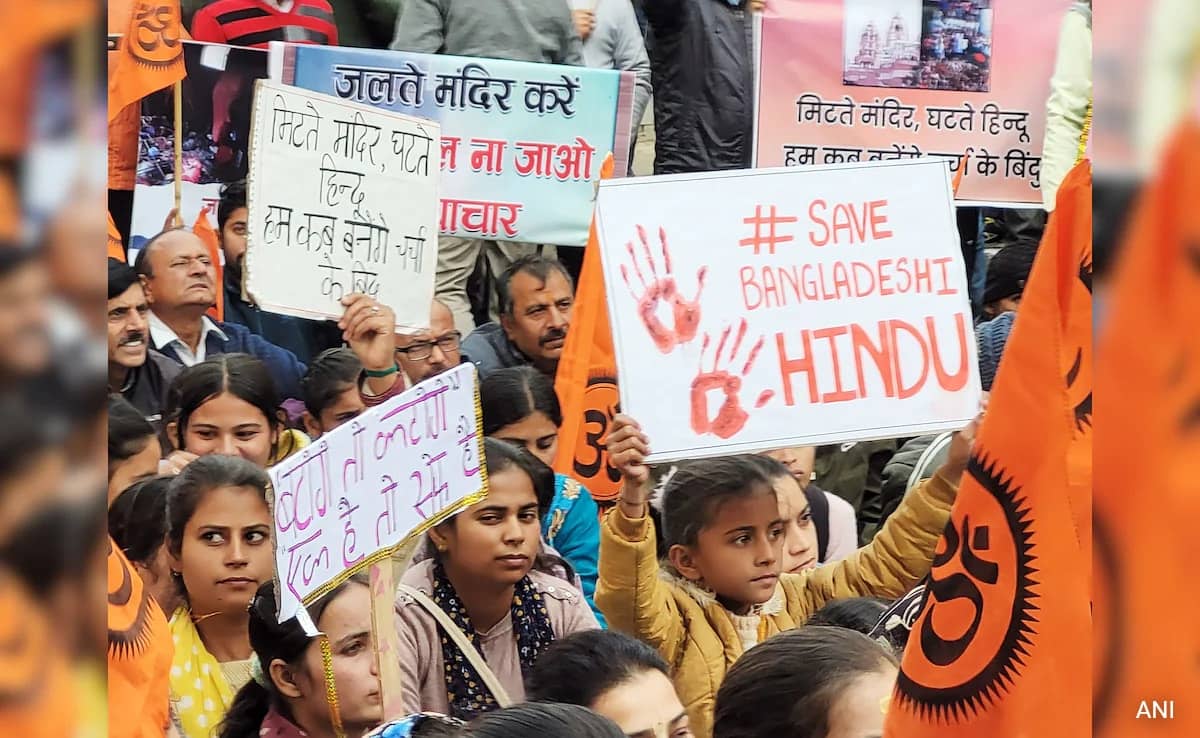 जलते मंदिर करें
ल ना जाओ
मिटते मंदिर, घटते
हिन्दू
हम कब बनेंगे चर्चा
के बिंदु
मिटते मंदिर, घटते हिन्दू
हम कब बनेंगे चर्चा के बिंदु
# SAVE
BANGLADESHI
HINDU
बटोगे तो कटोगे
एक है तो सेफ है
ॐ
ॐ
ॐ
ANI